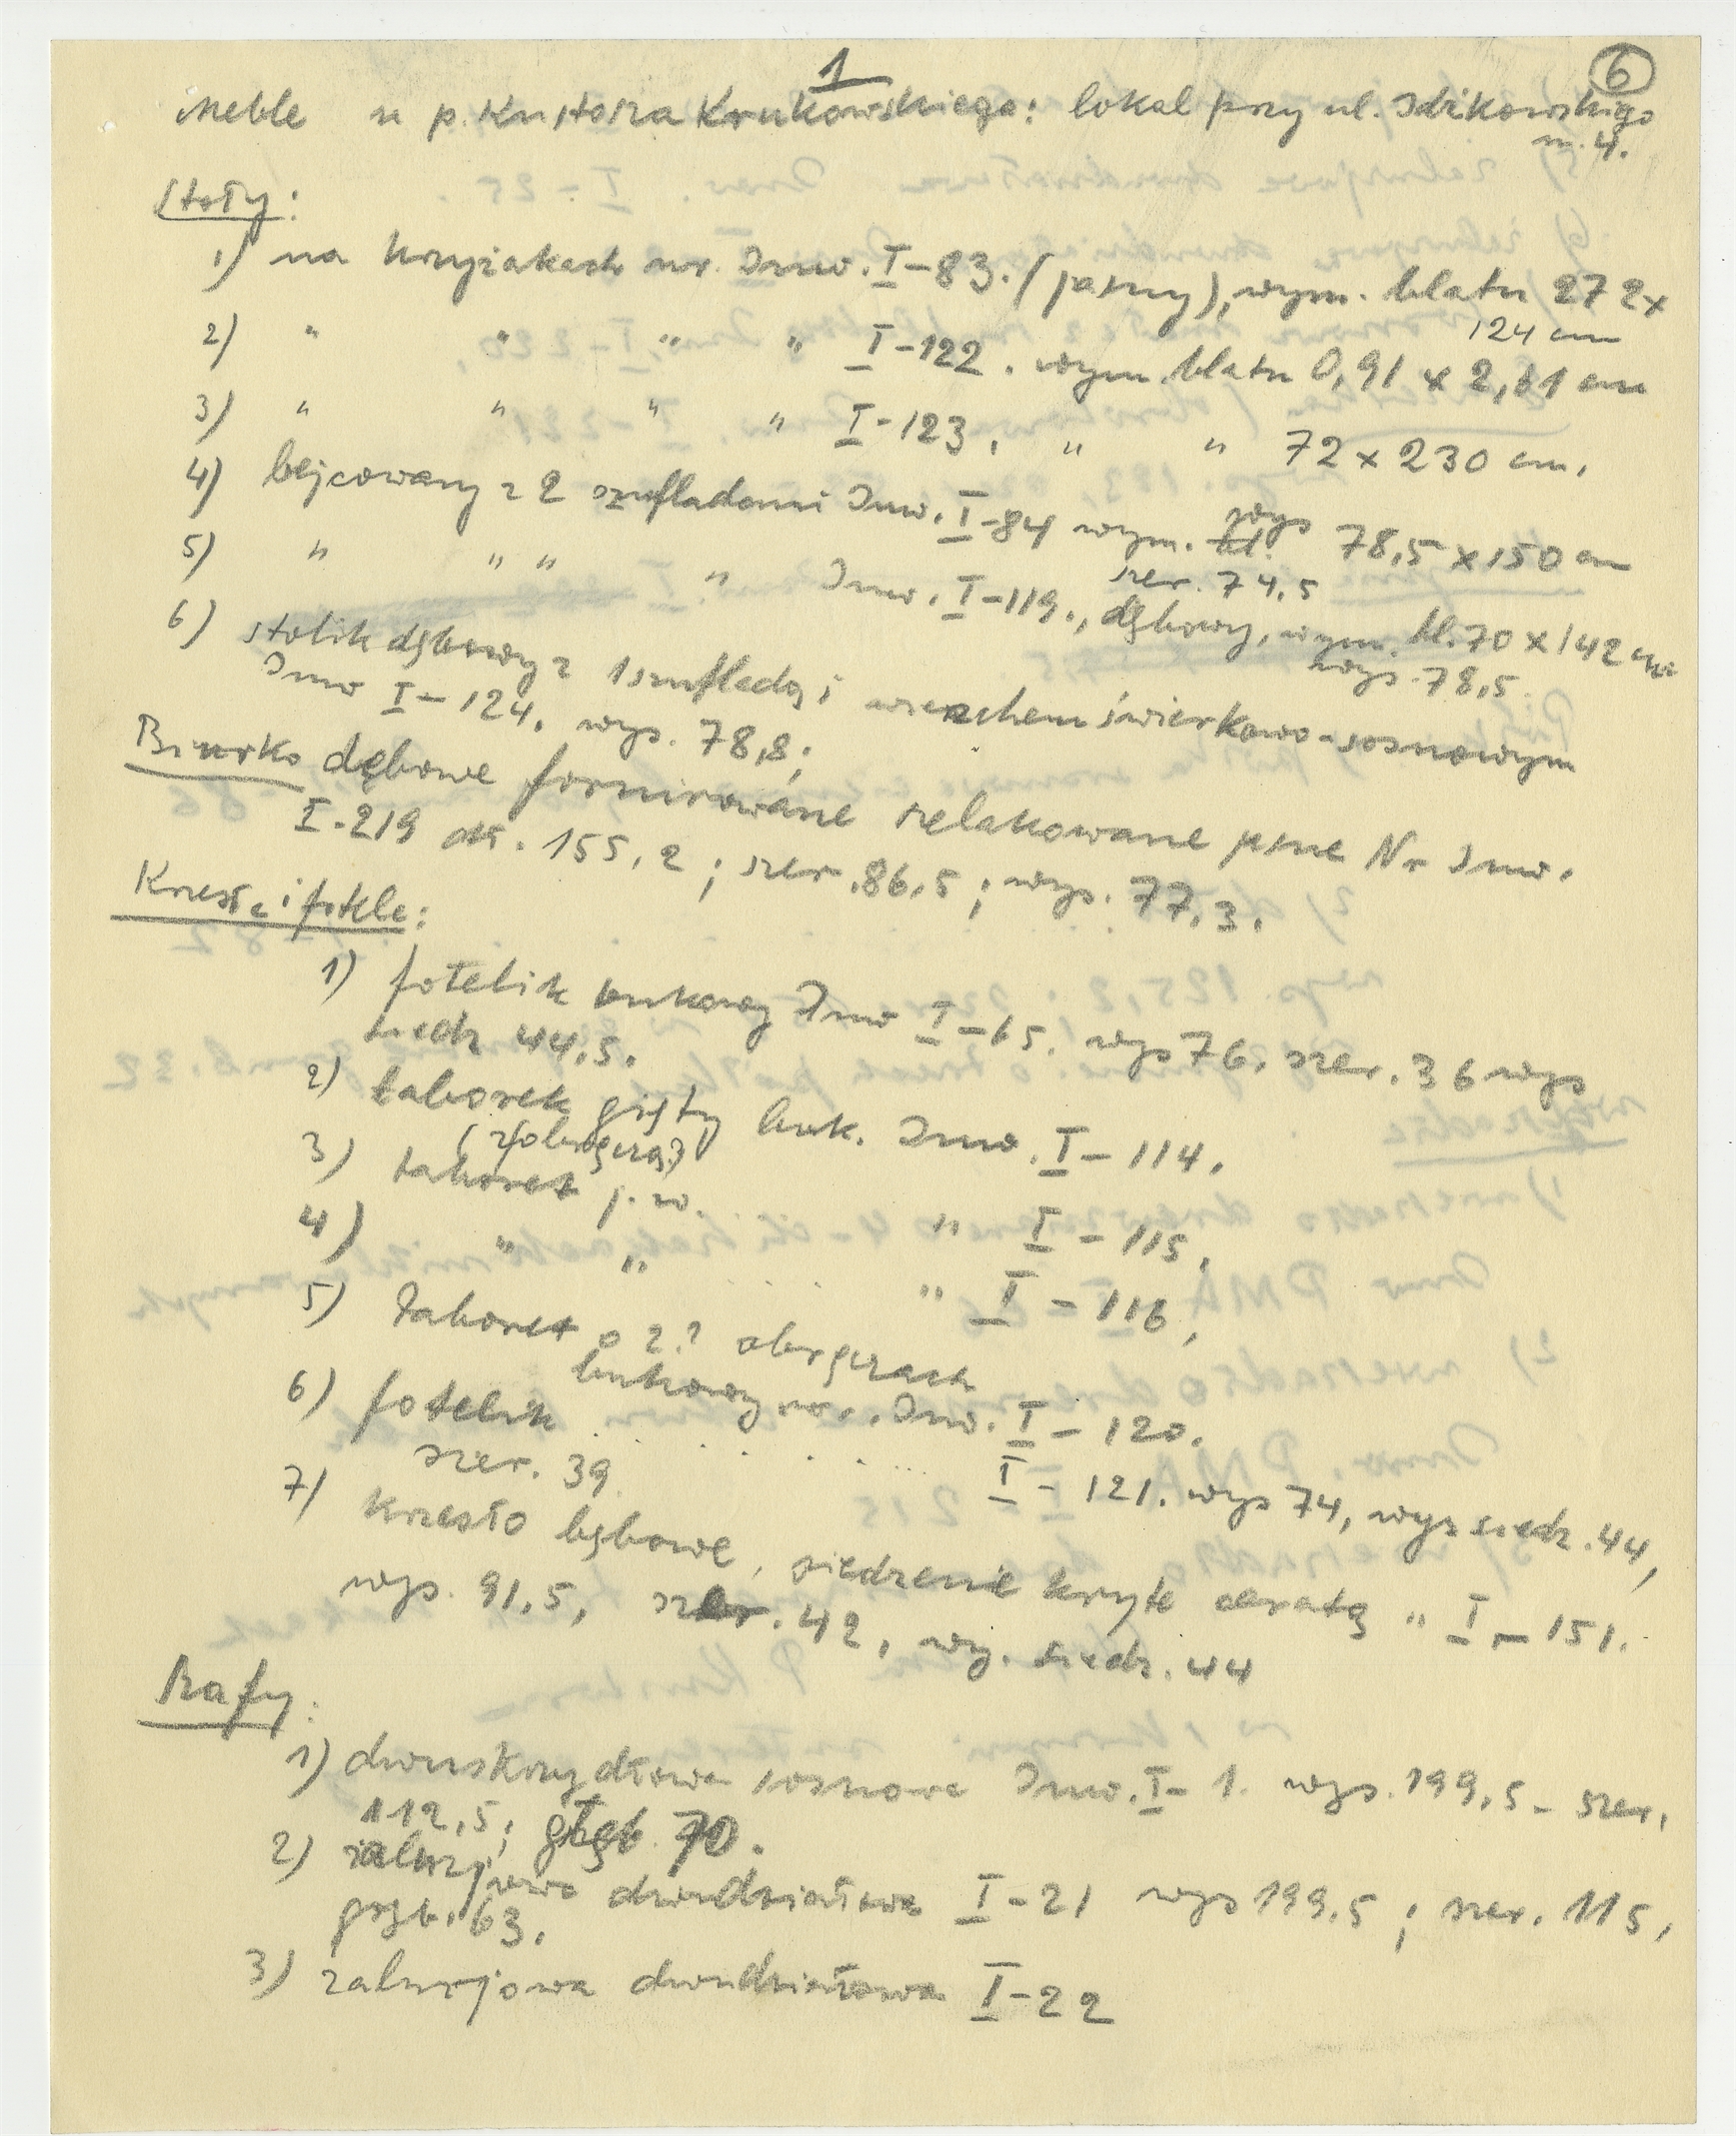 1
6
Meble u p. Kustosza Krukowskiego: lokal przy ul. Idzikowskiego
m. 4.
Stoły:
1) na krzyżakach nr. Inw. I-83. (jasny), wym. blatu 272x
124 cm
2) " " " " I-122. wym. blatu 0,91 x 2,61 cm
3) " " " " I-123. " " 72 x 230 cm.
4) bejcowany z 2 szufladami Inw. I-84 wym. wys 78,5 x 150 cm
szer. 74,5
5) " " " " Inw. I-119., dębowy, wym. bl. 70 x 142 cm
wys. 78,5.
6) stolik dębowy z 1 szufladą i wierzchem świerkowo-sosnowym
Inw I-124. wys. 78,8;
Biurko dębowe fornirowane szelakowane jasne Nr Inw.
I-219 dł. 155,2; szer. 86,5; wys. 77,3.
Krzesła i fotele:
1) fotelik bukowy Inw I-65. wys 76. szer. 36 wys
siedz 44,5.
2) taboret gięty buk. Inw. I-114.
(z obręczą?)
3) taboret j.w. " I-115,
4) " " " I-116,
5) Taboret o 2? obręczach
bukowy nr. Inw. I-120.
6) fotelik I-121. wys 74, wys siedz. 44,
szer. 39
7) krzesło bębowe, siedzenie kryte ceratą " I-151.
wys. 91,5, szer. 42, wy. siedz. 44
Szafy:
1) dwuskrzydłowa sosnowa Inw. I-1. wys. 199,5 - szer.
112,5; głęb. 70.
2) żaluzjowa dwudziałowa I-21 wys 199,5; szer. 115,
głęb. 63.
3) żaluzjowa dwudziałowa I-22